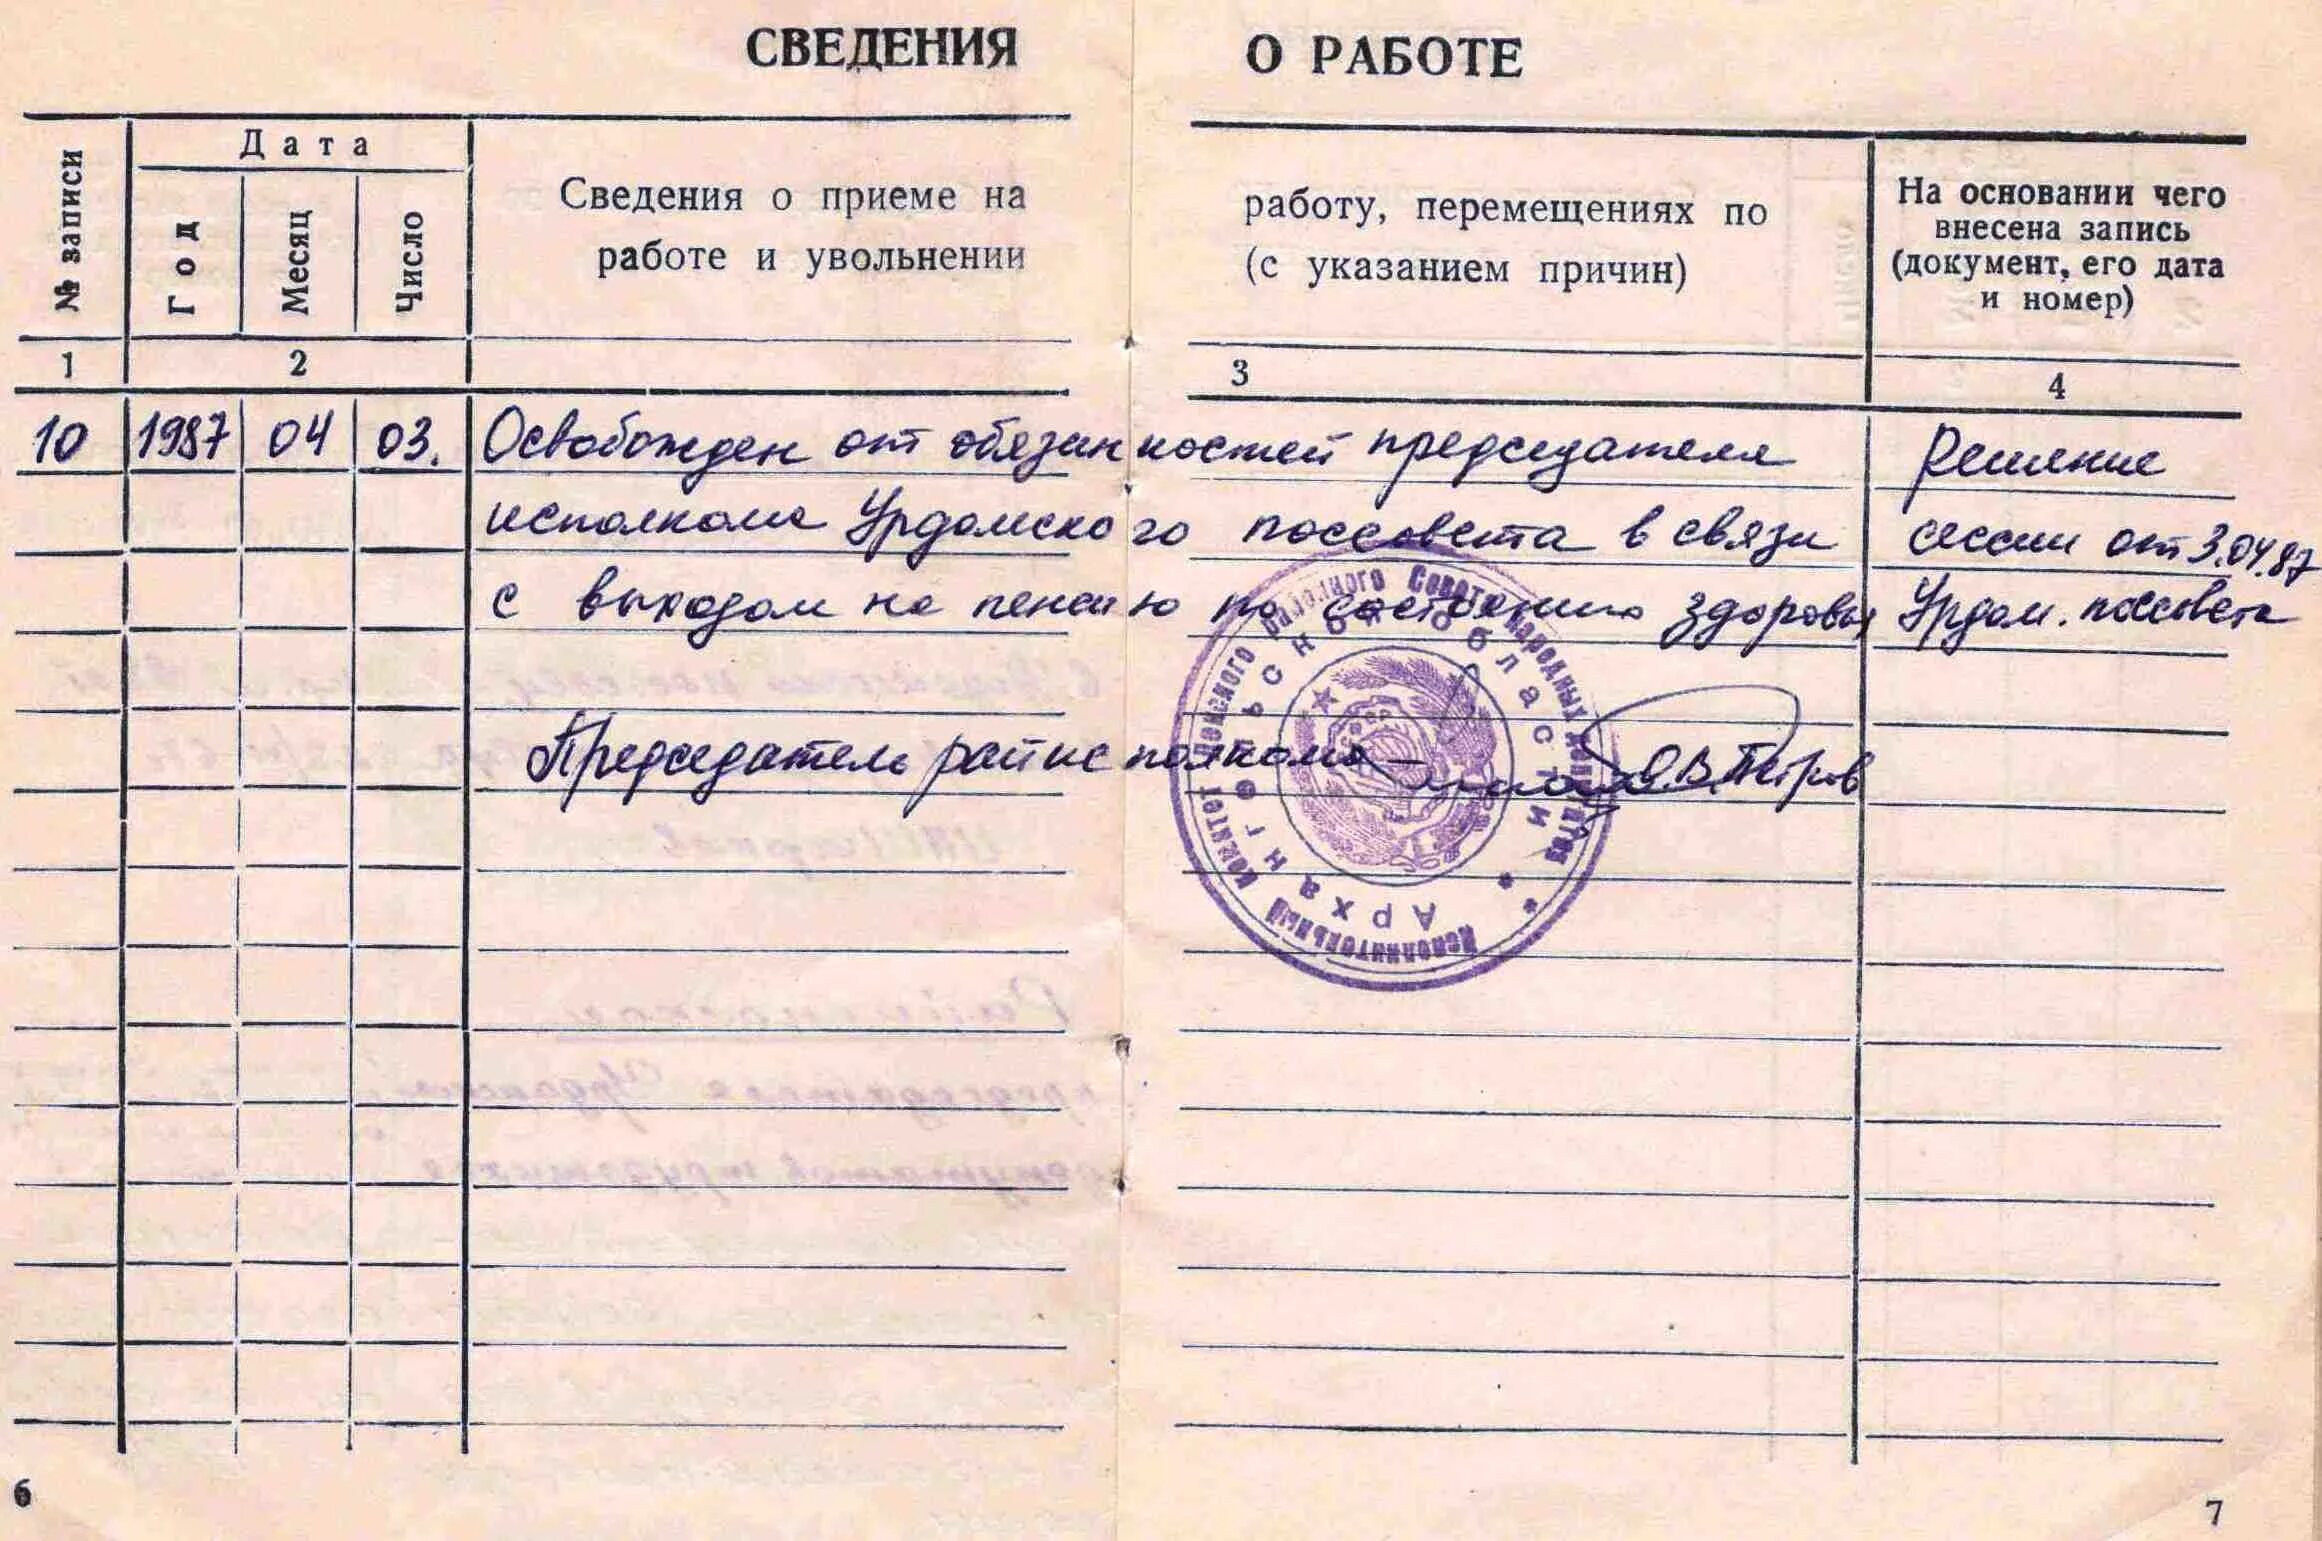 СВЕДЕНИЯ О РАБОТЕ
№ записи
Дата
Год
Месяц
Число
Сведения о приеме на работу, перемещениях по
работе и увольнении (с указанием причин)
На основании чего
внесена запись
(документ, его дата
и номер)
1 2 3 4
10 1987 04 03. Освобожден от обязанностей председателя Решение
исполкома Урдомского поссовета в связи сессии от 3.04.87
с выходом на пенсию по состоянию здоровья Урдом. поссовета
Председатель райисполкома В. Петров
Исполнительный комитет Ленского районного Совета народных депутатов
Архангельской области
6
7